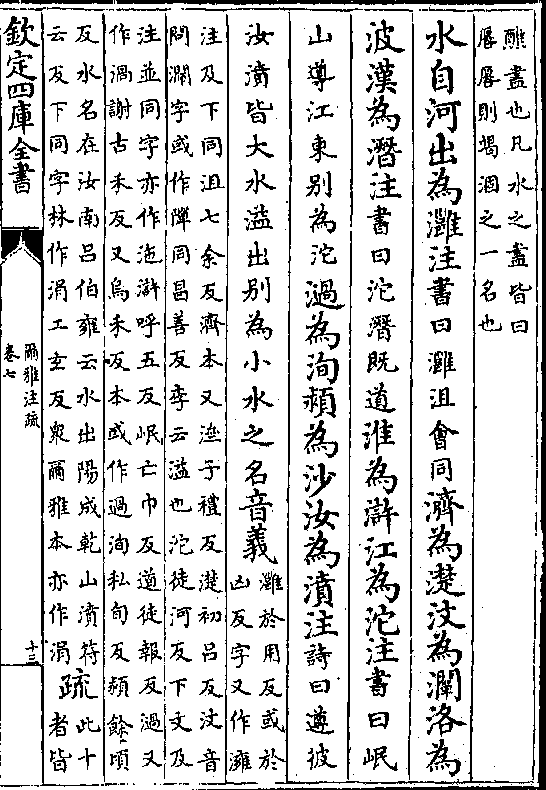 醮盡也凡水之盡皆曰
厬厬則竭涸之一名也
水自河出為灉注書曰灉沮會同濟為濋汶為瀾洛為
波漢為潛注書曰沱潛既道淮為滸江為沱注書曰岷
山導江東别為沱過為洵潁為沙汝為濆注詩曰遵彼
汝濆皆大水溢出别為小水之名音義
灉於用反或於
凶反字又作澭
注及下同沮七余反濟本又㳛子禮反濋初呂反汶音
問瀾字或作灛同昌善反李云溢也沱徒河反下文及
注並同字亦作沲滸呼五反岷亡巾反道徒報反過又
作濄謝古禾反又烏禾反本或作過洵私旬反潁餘頃
反水名在汝南呂伯雍云水出陽成乾山濆符
云反下同字林作涓工玄反衆爾雅本亦作涓
疏
此十
者皆
欽定四庫全書
爾雅注疏
卷七
十三